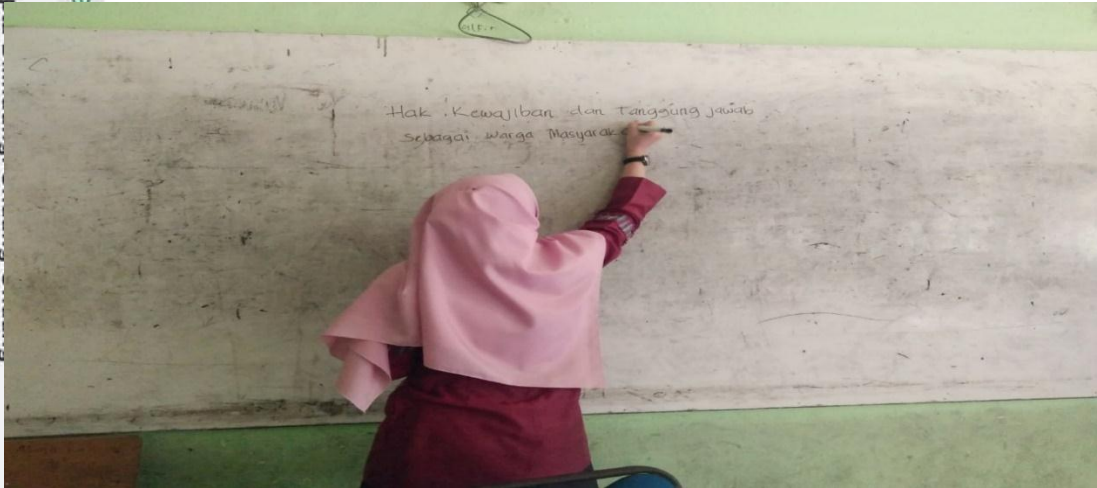 alfin
Hak, Kewajiban dan Tanggung jawab
sebagai warga Masyarak